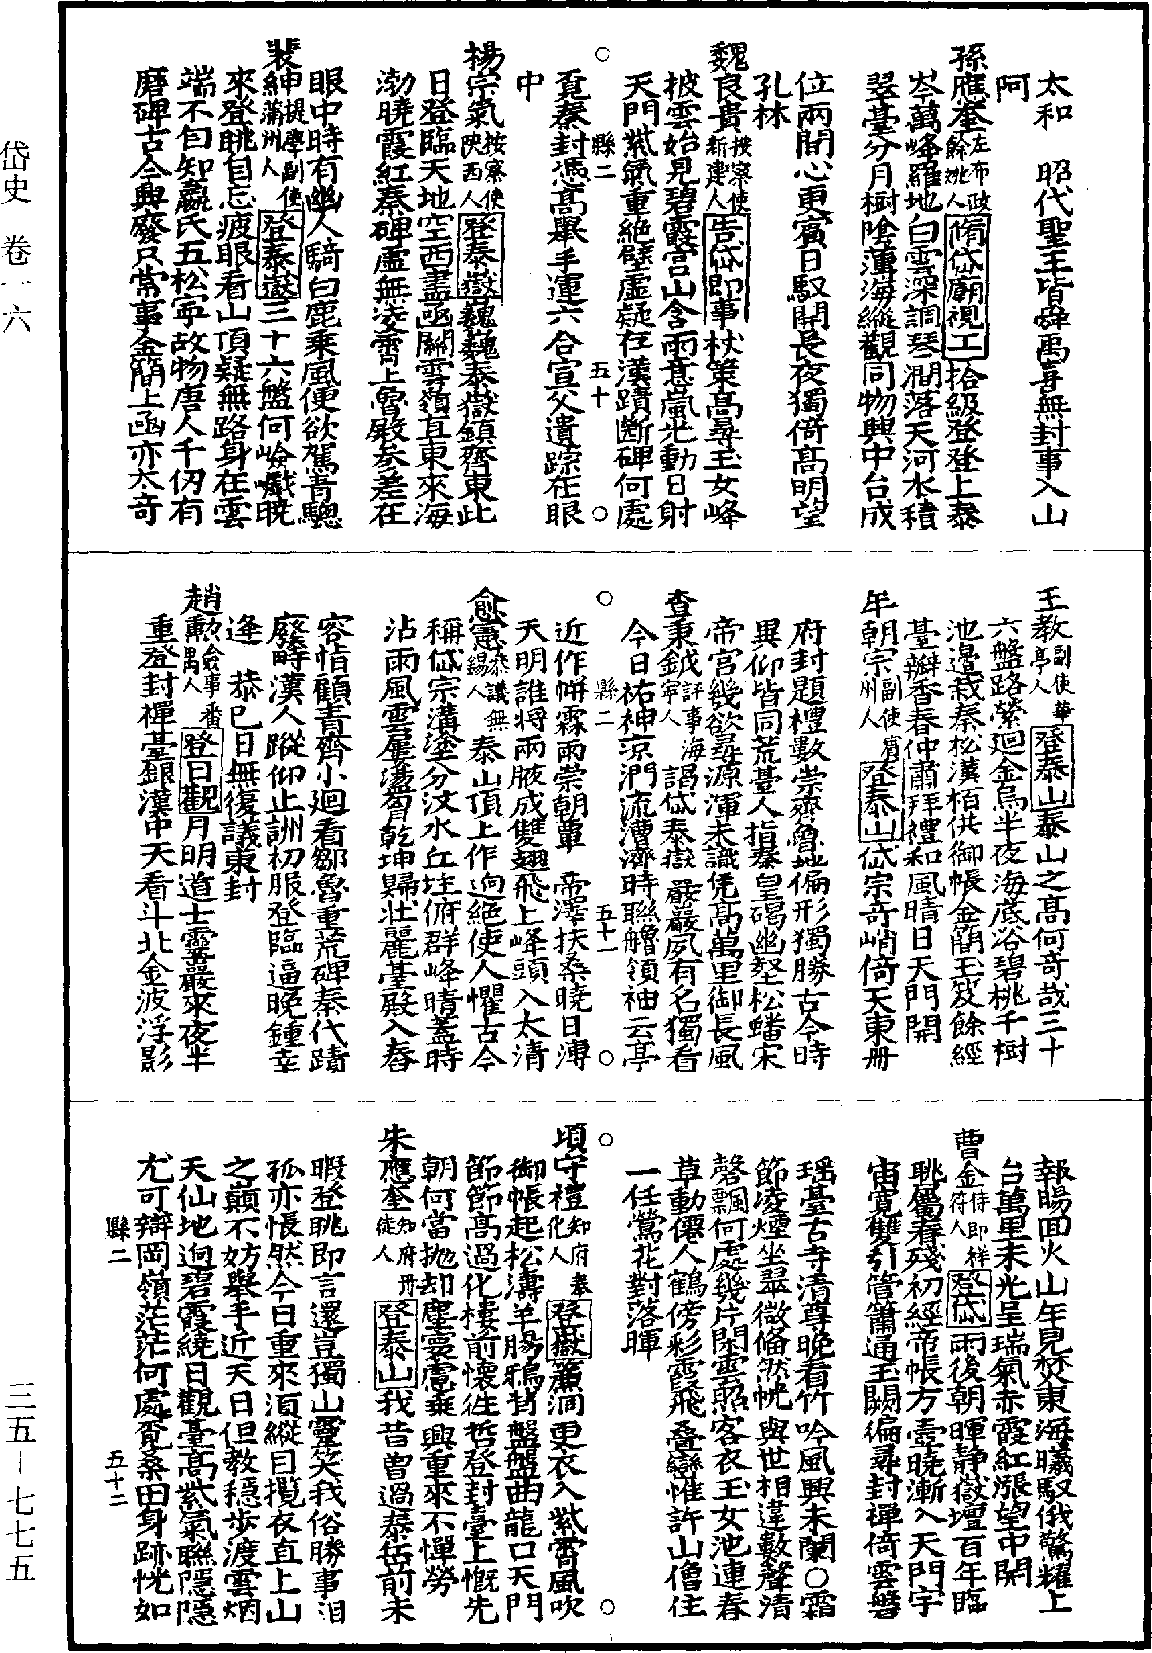 太和　昭代聖王皆舜禹喜無封事入山
阿
孫應奎左布政餘姚人脩岱廟視工拾級登登上泰
岑萬峰羅地白雲深調琴澗落天河水積
翠臺分月樹陰薄海縱觀同物興中台成
位兩間心更賓日馭開長夜獨倚高明望
孔林
魏良貴按察使新建人告岱即事杖策高尋玉女峰
披雲始見碧霞宮山含雨意嵐光動日射
天門紫氣重絕壁虛疑在漢蹟斷碑何處
縣二　五十
覓秦封憑高舉手運六合宣父遺踪在眼
中
楊宗氣按察使陝西人登泰嶽巍巍泰嶽鎮齊東此
日登臨天地空西盡函關雲嶺直東來海
渤曉霞紅秦碑虛無淩霄上魯殿參差在
眼中時有幽人騎白鹿乘風便欲駕青驄
裴紳提學副使蒲州人登泰嶽三十六盤何嶮巇曉
來登眺自忘疲眼看山頂疑無路身在雲
端不自知嬴氏五松寧故物唐人千仞有
磨碑古今興廢只常事金簡上函亦太奇
王教副使華亭人登泰山泰山之高何奇哉三十
六盤路縈迴金烏半夜海底浴碧桃千樹
池邊栽秦松漢栢供御帳金蕳玉芨餘經
臺瓣香春仲肅拜禮和風晴日天門開
年朝宗副使州人登泰山岱宗奇峭倚天東冊
府封題禮數崇齊魯地偏形獨勝古今時
異仰皆同荒臺人指秦皇碣幽壑松蟠宋
帝宮幾欲尋源渾未識凭高萬里御長風
查秉鉞評事海寧人謁岱泰嶽巖巖夙有名獨看
今日祐神京門流漕濟時聯艚領袖云亭
縣二　五十一
近作帡霖雨崇朝覃　帝澤扶桑曉日溥
天明誰將兩腋成雙翅飛上峰頭入太清
愈憲叅議無錫人泰山頂上作逈絕使人懼古今
稱岱宗溝塗分汶水丘垤俯群峰晴蓋時
沾雨風雲屢盪胷乾坤歸壯麗臺殿入舂
容指顧青齊小迴看鄒魯重荒碑秦代蹟
廢畤漢人蹤仰止詶初服登臨逼晚鍾幸
逢　恭巳日無復議東封
趙勲僉事番禺人登日觀月明道士靈巖來夜半
重登封禪臺銀漢中天看斗北金波浮影
報暘回火山年見焚東海曦馭俄驚耀上
台萬里末光呈瑞氣赤霞紅漲望中開
曹金侍郎祥符人登岱雨後朝暉靜嶽壇百年臨
眺屬春殘初經帝帳方壺曉漸入天門宇
宙寬雙引管簫通玉闕徧尋封禪倚雲磐
瑶臺古寺清尊晚看竹吟風興未闌〇霜
節凌煙坐翠微偹然帨與世相違數聲清
磬飄何處幾片閑雲照客衣玉女池連春
草動僊人鶴傍彩霞飛叠巒惟許山僧住
一任鶯花對落暉
項守禮知府奉化人登嶽簫洞更衣入紫霄風吹
御帳起松濤羊腸鴉背盤盤曲龍口天門
節節高過化樓前懷往哲登封臺上慨先
朝何當拋却塵寰慮乘興重來不憚勞
朱應奎知府冊徒人登泰山我昔曾過泰岳前未
暇登眺即言還豈獨山靈笑我俗勝事泪
孤亦悵然今日重來湏縱目攬衣直上山
之巔不妨舉手近天日但教穩步渡雲烟
天仙地迥碧霞繞日觀臺高紫氣聯隱隱
尤可辯岡嶺茫茫何處覔桑田身跡恍如
縣二　五十二
岱史　卷一六　三五－七七五